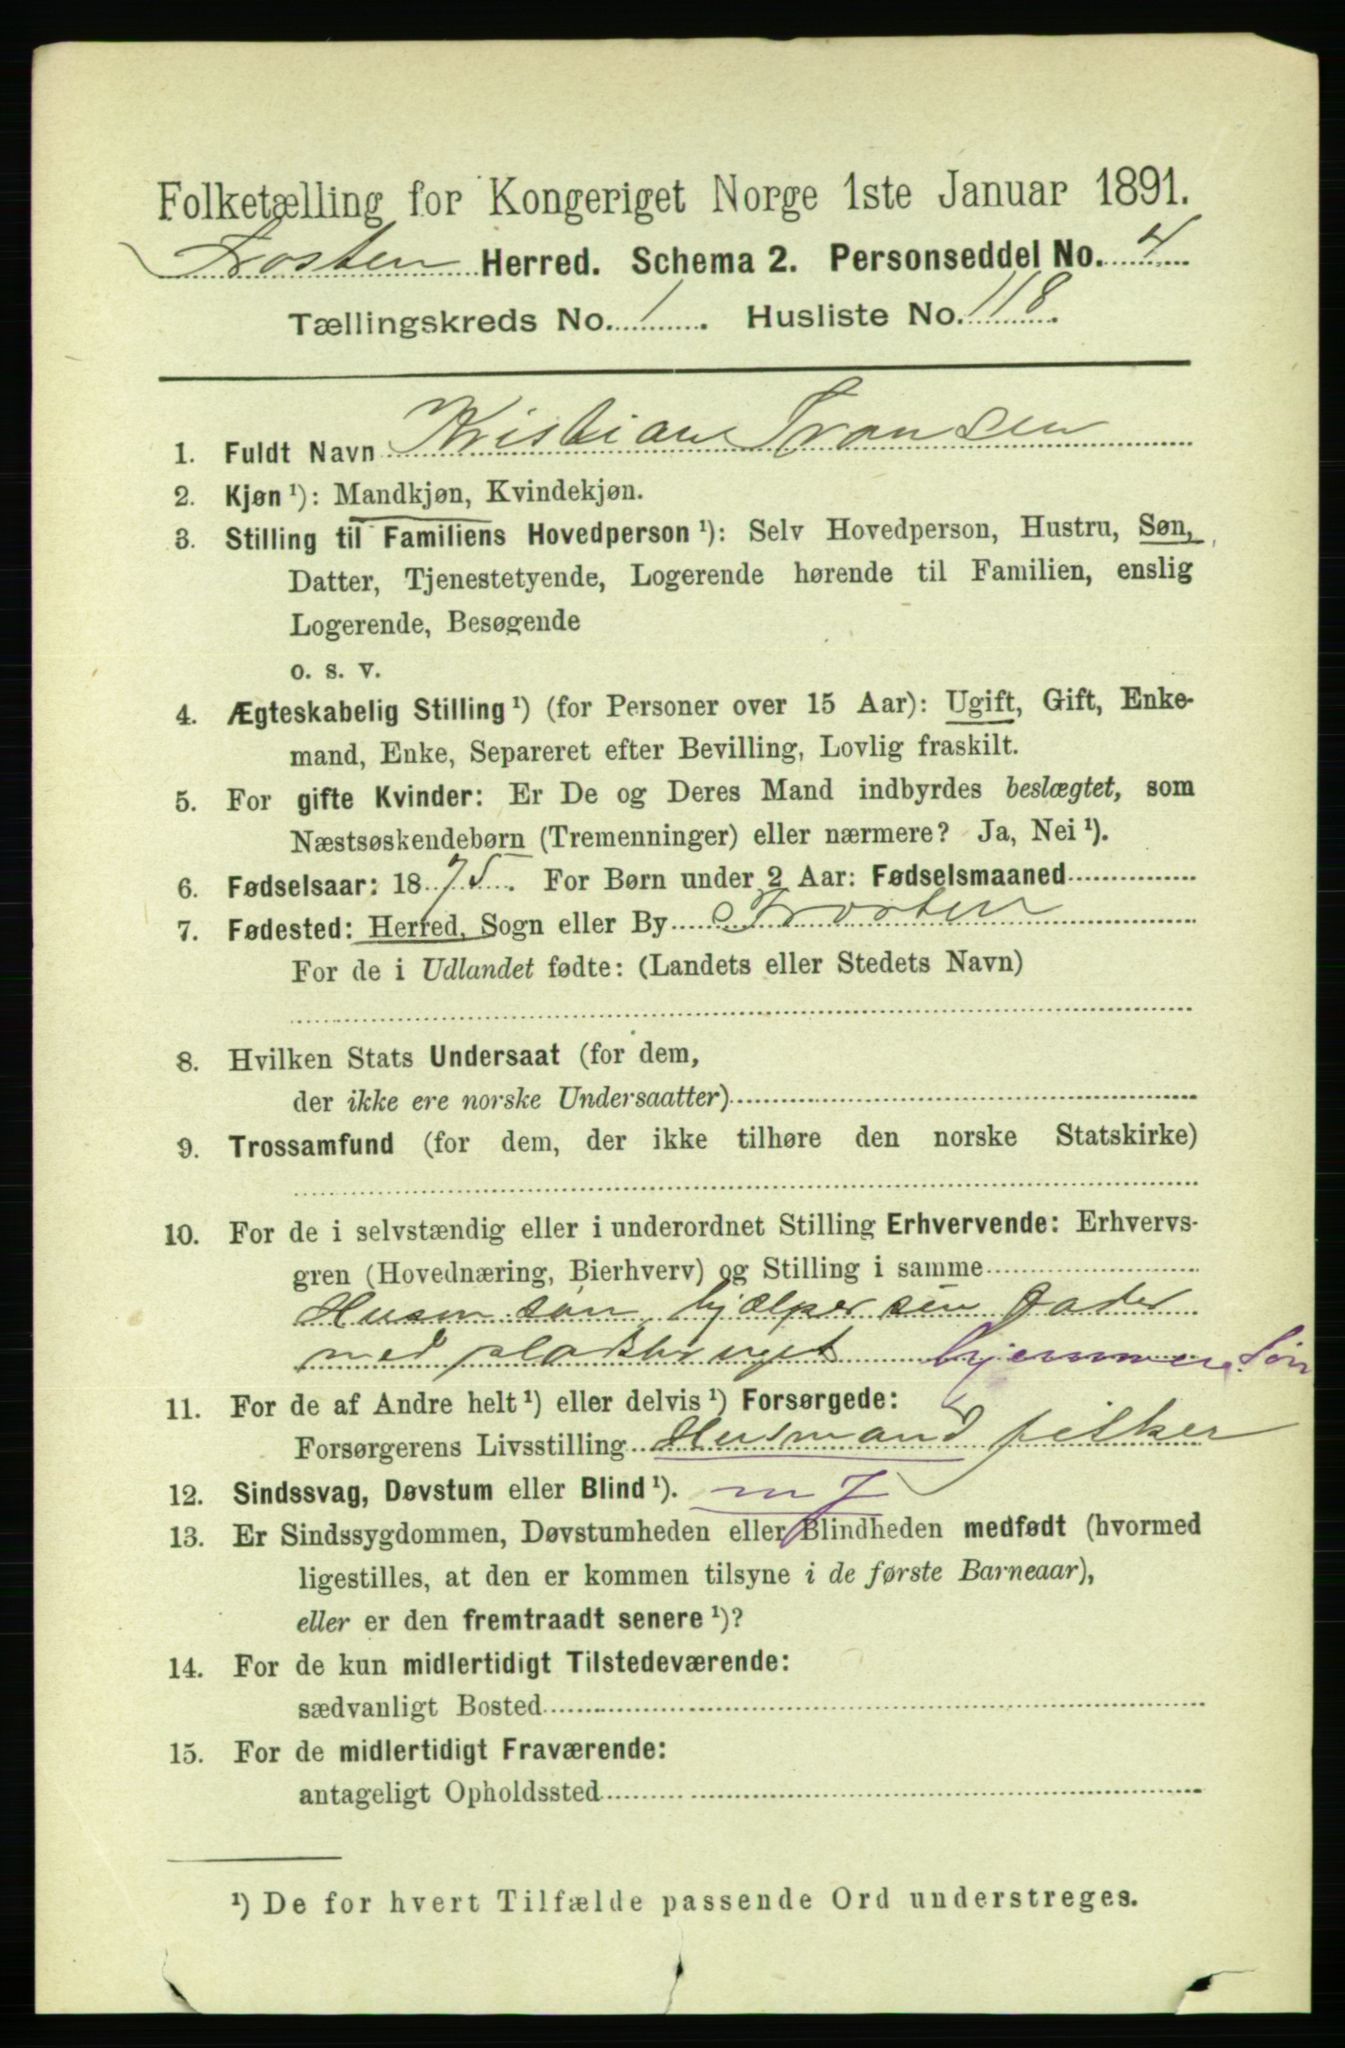 Folketælling for Kongeriget Norge 1ste Januar 1891.
Frosten Herred. Schema 2. Personseddel No. 4
Tællingskreds No. 1. Husliste No. 118.
1. Fuldt Navn Kristian Transen
2. Kjøn ¹): Mandkjøn, Kvindekjøn.
3. Stilling til Familiens Hovedperson ¹): Selv Hovedperson, Hustru, Søn,
Datter, Tjenestetyende, Logerende hørende til Familien, enslig
Logerende, Besøgende
o. s. v.
4. Ægteskabelig Stilling ¹) (for Personer over 15 Aar): Ugift, Gift, Enke-
mand, Enke, Separeret efter Bevilling, Lovlig fraskilt.
5. For gifte Kvinder: Er De og Deres Mand indbyrdes beslægtet, som
Næstsøskendebørn (Tremenninger) eller nærmere? Ja, Nei ¹).
6. Fødselsaar: 1875. For Børn under 2 Aar: Fødselsmaaned
7. Fødested: Herred, Sogn eller By Frosten
For de i Udlandet fødte: (Landets eller Stedets Navn)
8. Hvilken Stats Undersaat (for dem,
der ikke ere norske Undersaatter)
9. Trossamfund (for dem, der ikke tilhøre den norske Statskirke)
10. For de i selvstændig eller i underordnet Stilling Erhvervende: Erhvervs-
gren (Hovednæring, Bierhverv) og Stilling i samme
Husm søn, hjælper sin Fader
med hjemmev. Søn
11. For de af Andre helt ¹) eller delvis ¹) Forsørgede:
Forsørgerens Livsstilling Husmand fisker
12. Sindssvag, Døvstum eller Blind ¹). m J
13. Er Sindssygdommen, Døvstumheden eller Blindheden medfødt (hvormed
ligestilles, at den er kommen tilsyne i de første Barneaar),
eller er den fremtraadt senere ¹)?
14. For de kun midlertidigt Tilstedeværende:
sædvanligt Bosted
15. For de midlertidigt Fraværende:
antageligt Opholdssted
¹) De for hvert Tilfælde passende Ord understreges.